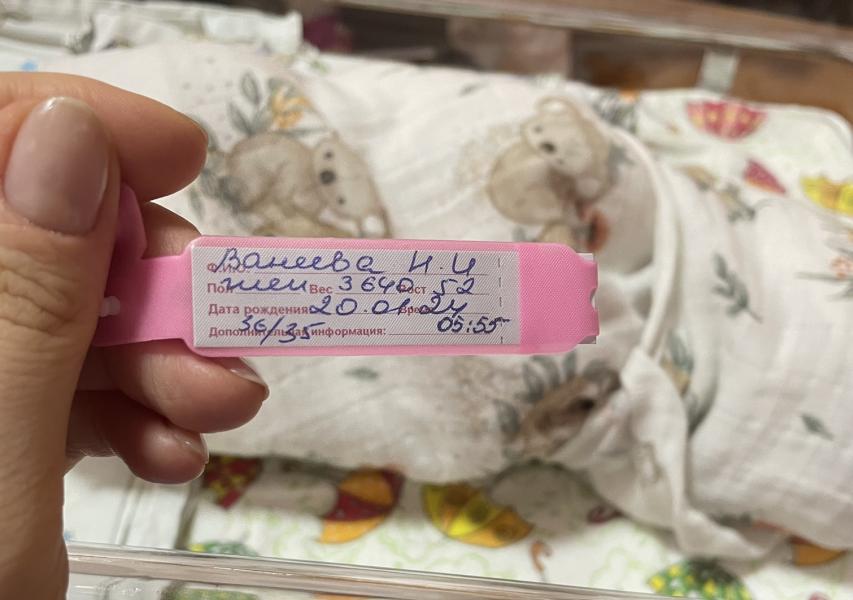 Ф.И.О. Ванеева Н. И
Пол жен Вес 3640 Рост 52
Дата рождения 20.01.24 Время 05:55
36/35
Дополнительная информация: